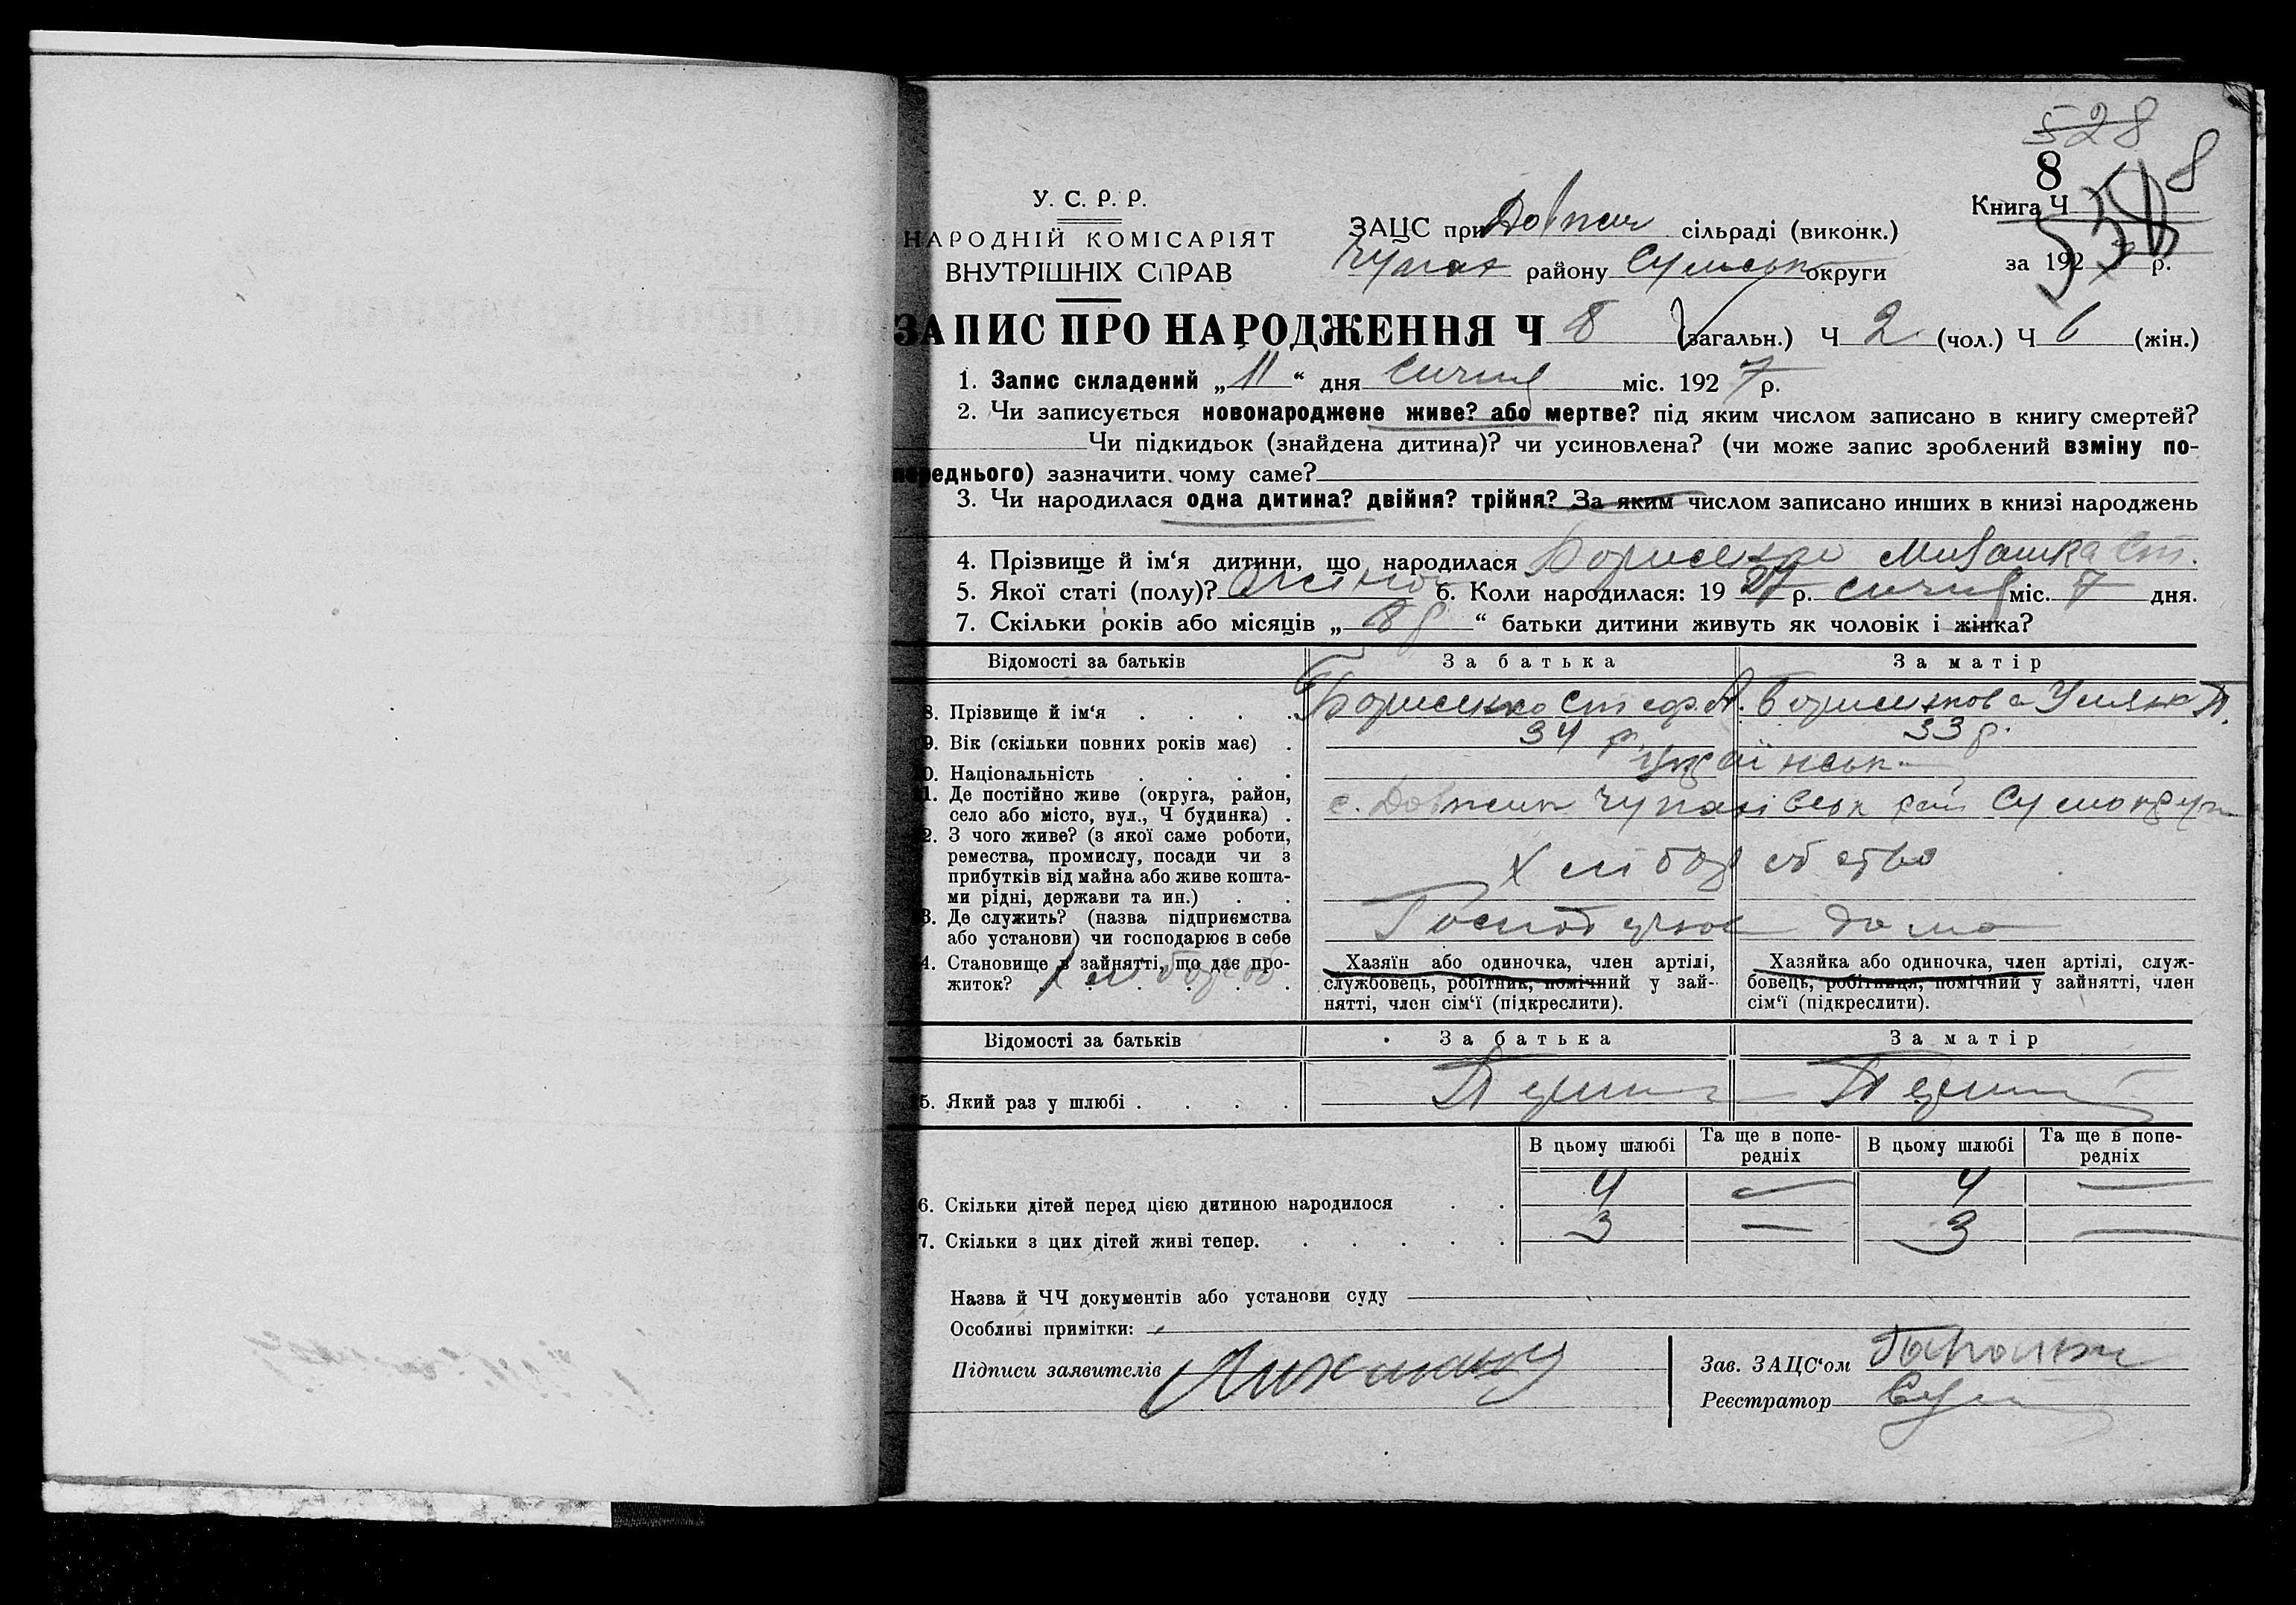 528
8
8
У. С. Р. Р.
НАРОДНІЙ КОМІСАРІЯТ
ВНУТРІШНІХ СПРАВ
ЗАЦС при Довжик сільраді (виконк.)
Чупах району Сумськ округи
Книга Ч 538
за 1927 р.
ЗАПИС ПРО НАРОДЖЕННЯ Ч 8 (загальн.) Ч 2 (чол.) Ч 6 (жін.)
1. Запис складений „ 11 “ дня Січня міс. 1927 р.
2. Чи записується новонароджене живе? або мертве? під яким числом записано в книгу смертей?
Чи підкидьок (знайдена дитина)? чи усиновлена? (чи може запис зроблений взміну по-
переднього) зазначити чому саме?
3. Чи народилася одна дитина? двійня? трійня? За яким числом записано инших в книзі народжень
4. Прізвище й ім‘я дитини, що народилася Борисенко Ст.
5. Якої статі (полу)? жіноч 6. Коли народилася: 19 27 р. січня міс. 7 дня.
7. Скільки років або місяців „ “ батьки дитини живуть як чоловік і жінка?
Відомості за батьків За батька За матір
8. Прізвище й ім‘я Борисенко Стеф. А. Борисенкова Уляна П.
9. Вік (скільки повних років має) 34 р. 33 р.
10. Національність Українськ
11. Де постійно живе (округа, район, с. Довжик Чупахівськ рай Сум округи
село або місто, вул., Ч будинка)
12. З чого живе? (з якої саме роботи,
ремества, промислу, посади чи з Хліборобство
прибутків від майна або живе кошта-
ми рідні, держави та ин.)
13. Де служить? (назва підприємства Господарює дома
або установи) чи господарює в себе
14. Становище в зайнятті, що дає про- Хазяїн або одиночка, член артілі, Хазяйка або одиночка, член артілі, служ-
житок? хлібороб службовець, робітник, помічний у зай- бовець, робітниця, помічний у зайнятті, член
нятті, член сім‘ї (підкреслити). сім‘ї (підкреслити).
Відомості за батьків За батька За матір
15. Який раз у шлюбі Перший Перший
В цьому шлюбі Та ще в попе- В цьому шлюбі Та ще в попе-
редніх редніх
16. Скільки дітей перед цією дитиною народилося 4 — 4 —
17. Скільки з цих дітей живі тепер. 3 — 3 —
Назва й ЧЧ документів або установи суду
Особливі примітки:
Підписи заявителів Зав. ЗАЦС‘ом
Реєстратор